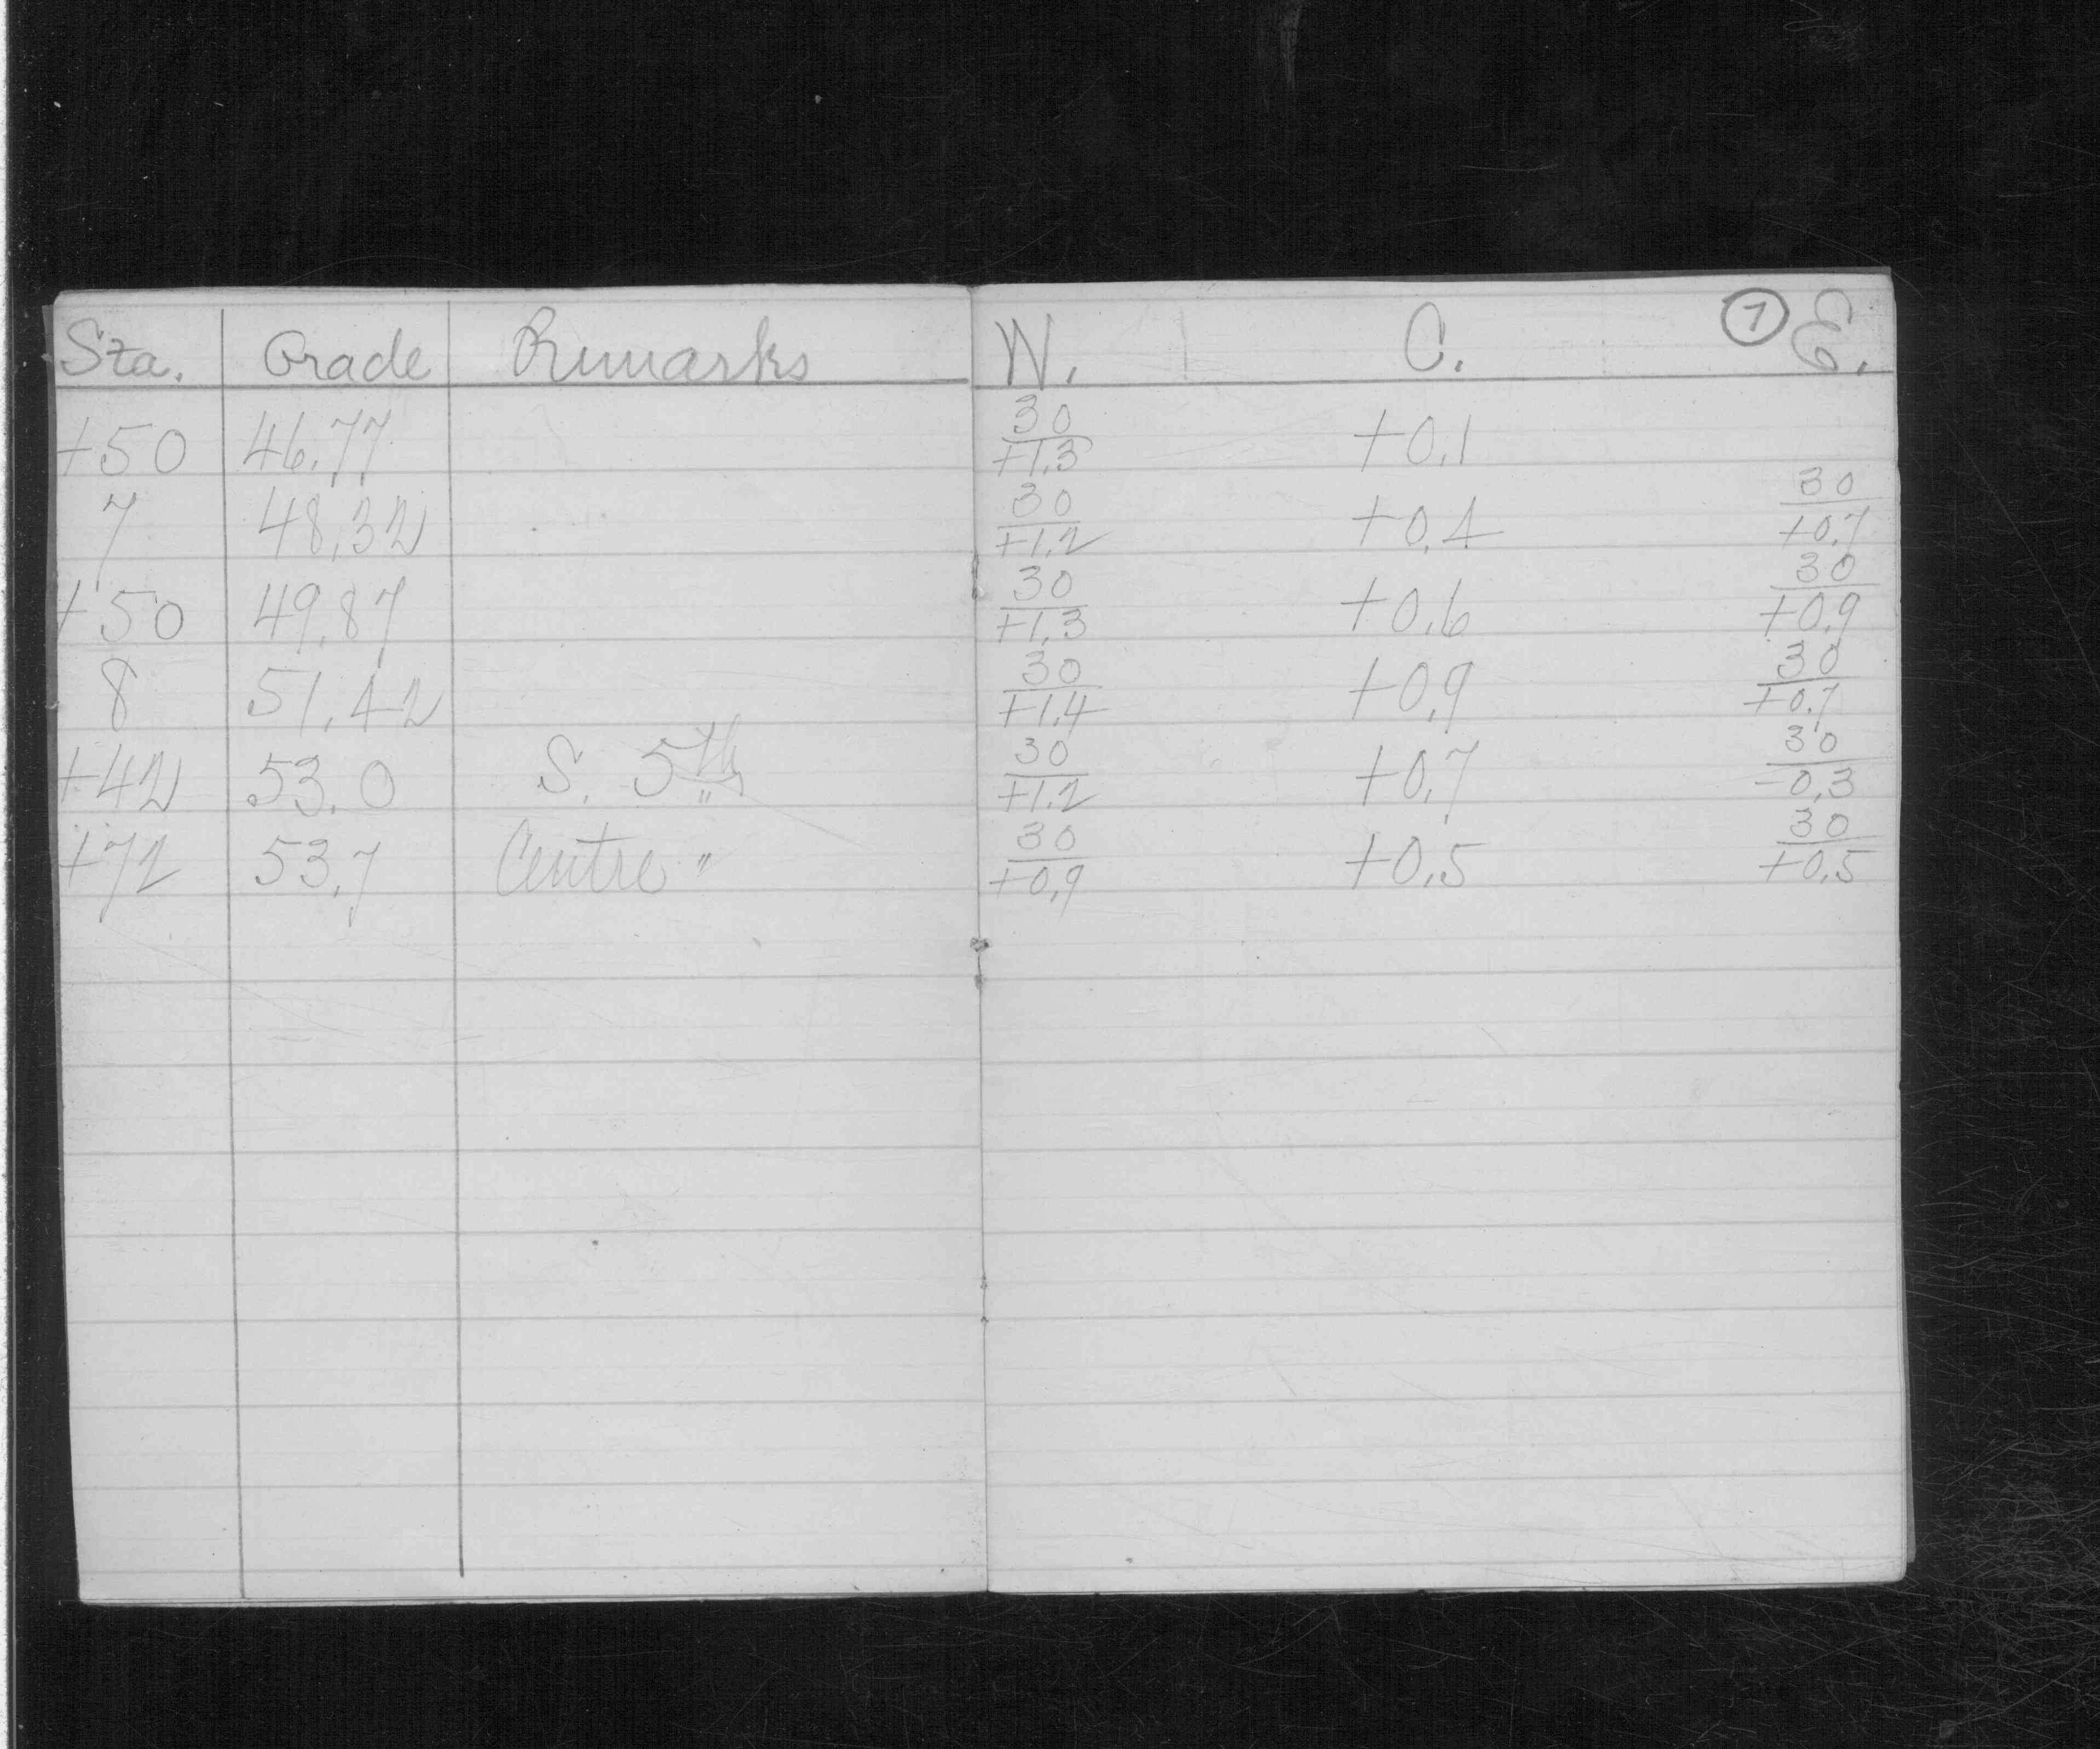 Sta. Grade Remarks W. C. 7 E.
+50 46.77 30/+1.3 +0.1
7 48.32 30/+1.2 +0.4 30/+0.7
+50 49.87 30/+1.3 +0.6 30/+0.9
8 51.42 30/+1.4 +0.9 30/+0.7
+42 53.0 S. 5th 30/+1.2 +0.7 30/-0.3
+72 53.7 Centre " 30/+0.9 +0.5 30/+0.5